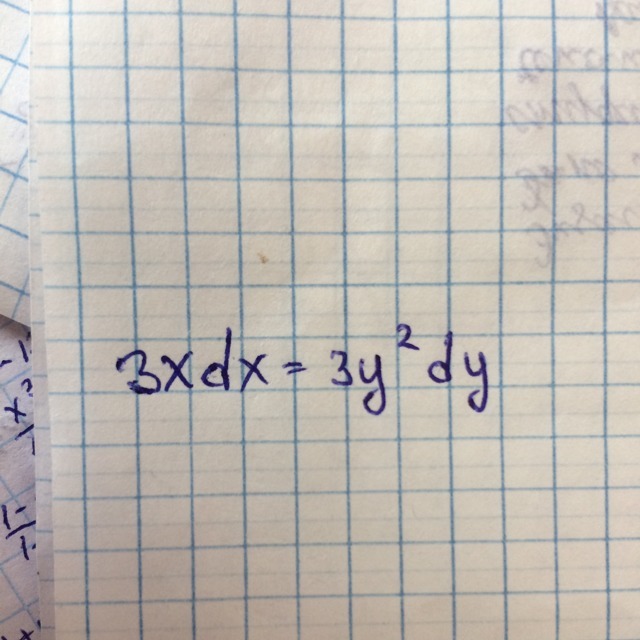 3xdx = 3y² dy